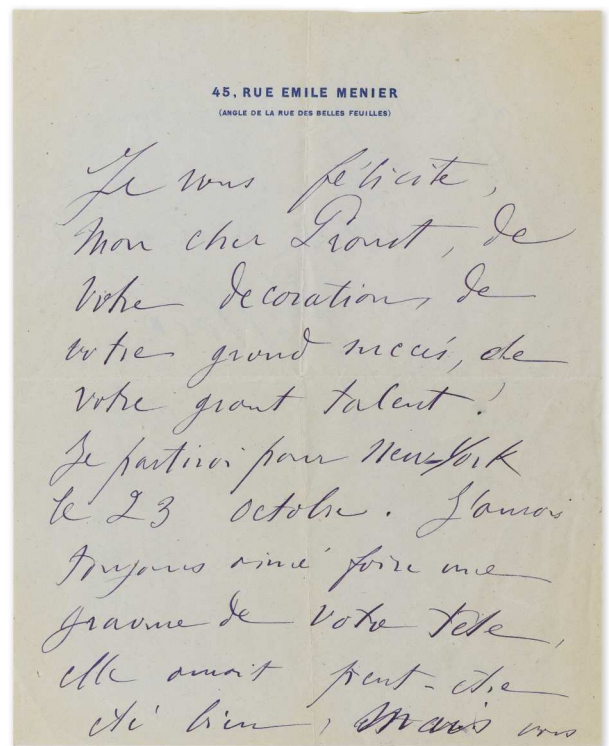 45, RUE EMILE MENIER
(ANGLE DE LA RUE DES BELLES FEUILLES)
Je vous félicite,
mon cher Proust, de
votre decoration, de
votre grand succés, de
votre grant talent !
Je partirai pour New-York
le 23 octobre. J'aurais
toujours aimé faire une
gravure de votre tete,
elle aurait peut-etre
été bien, mais vous